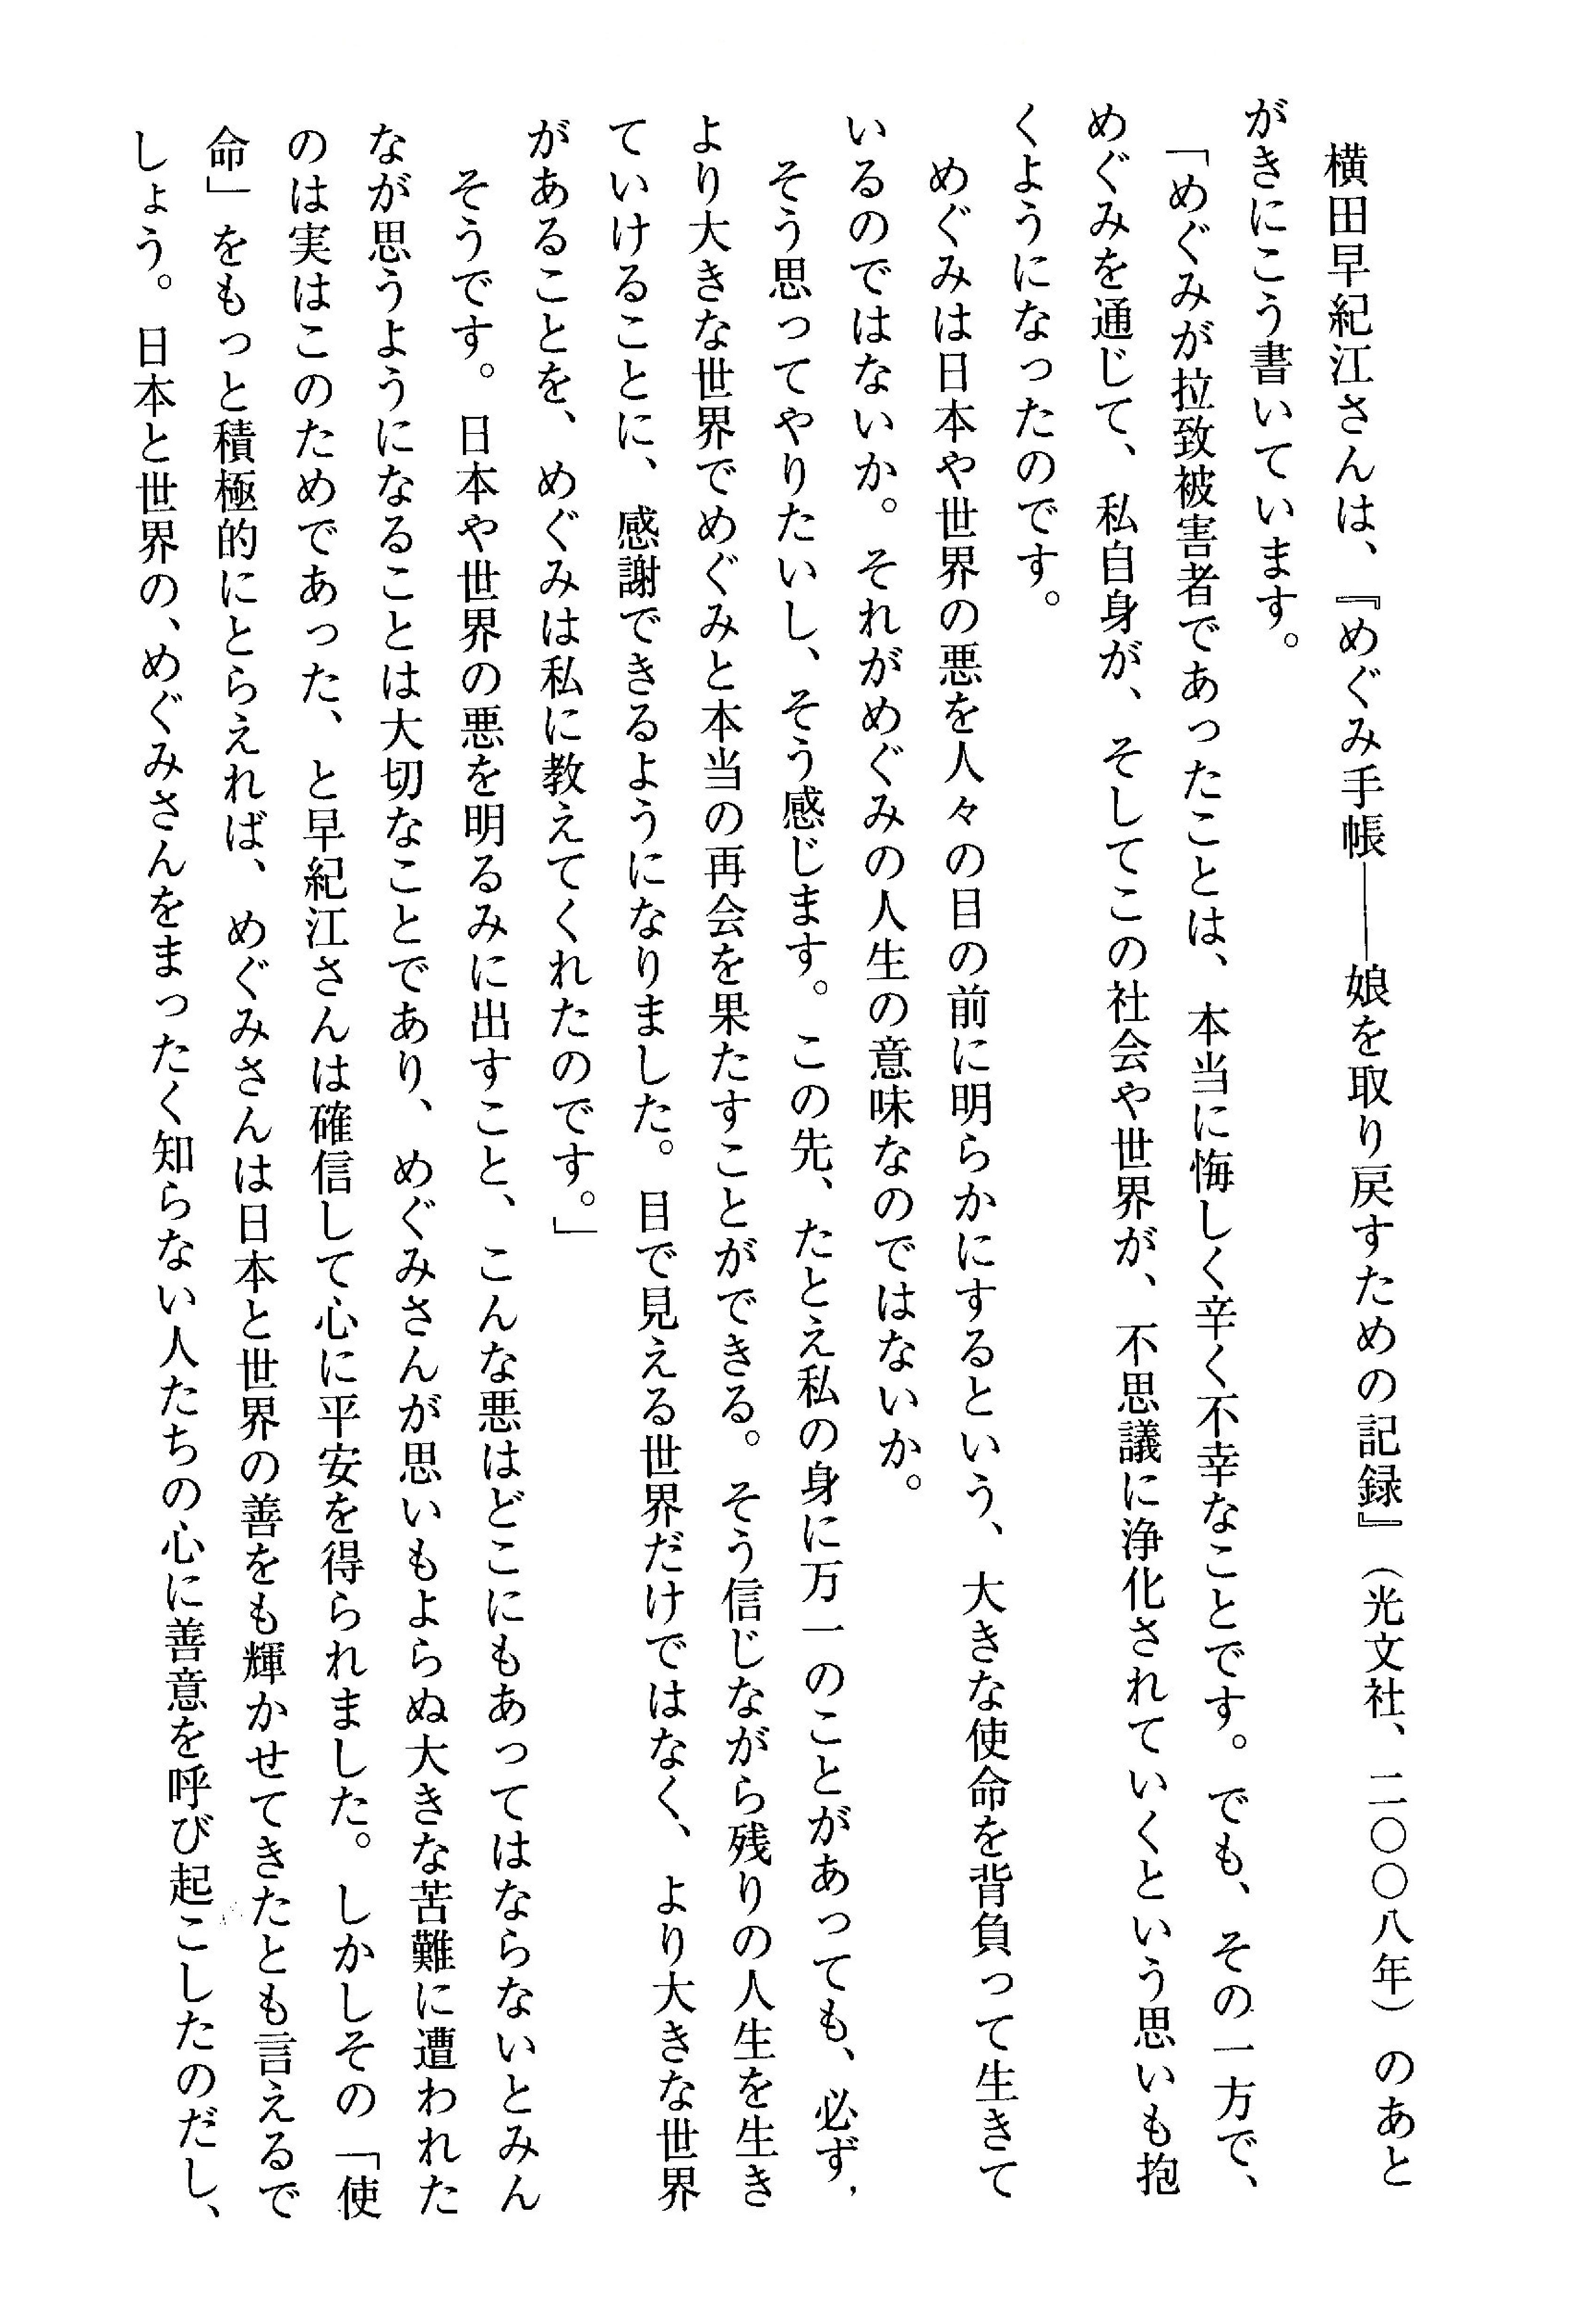 横田早紀江さんは、『めぐみ手帳――娘を取り戻すための記録』（光文社、二〇〇八年）のあと
がきにこう書いています。
「めぐみが拉致被害者であったことは、本当に悔しく辛く不幸なことです。でも、その一方で、
めぐみを通じて、私自身が、そしてこの社会や世界が、不思議に浄化されていくという思いも抱
くようになったのです。
めぐみは日本や世界の悪を人々の目の前に明らかにするという、大きな使命を背負って生きて
いるのではないか。それがめぐみの人生の意味なのではないか。
そう思ってやりたいし、そう感じます。この先、たとえ私の身に万一のことがあっても、必ず、
より大きな世界でめぐみと本当の再会を果たすことができる。そう信じながら残りの人生を生き
ていけることに、感謝できるようになりました。目で見える世界だけではなく、より大きな世界
があることを、めぐみは私に教えてくれたのです。」
そうです。日本や世界の悪を明るみに出すこと、こんな悪はどこにもあってはならないとみん
なが思うようになることは大切なことであり、めぐみさんが思いもよらぬ大きな苦難に遭われた
のは実はこのためであった、と早紀江さんは確信して心に平安を得られました。しかしその「使
命」をもっと積極的にとらえれば、めぐみさんは日本と世界の善をも輝かせてきたとも言えるで
しょう。日本と世界の、めぐみさんをまったく知らない人たちの心に善意を呼び起こしたのだし、